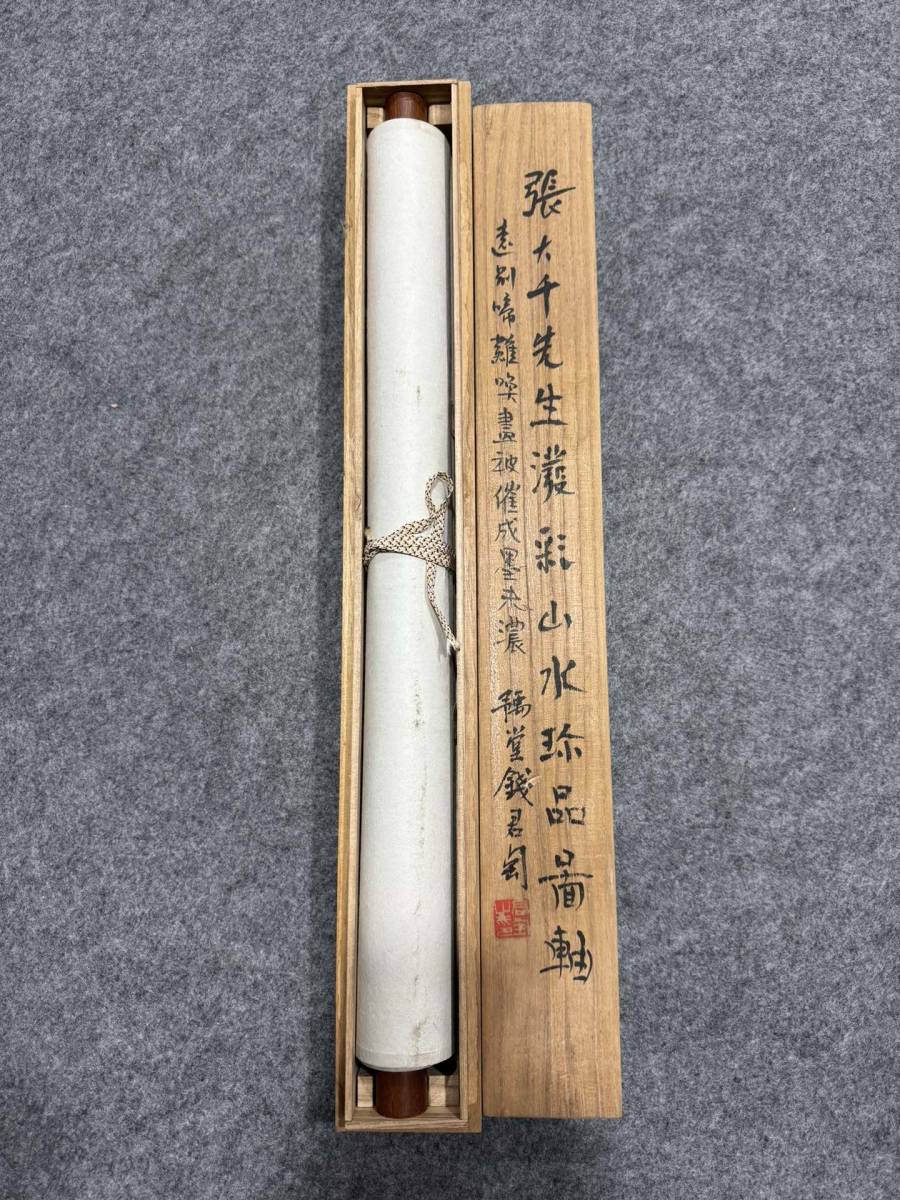 張大千先生潑彩山水珍品圖軸
遠別啼難喚書被催成墨未濃 豫堂錢君匋